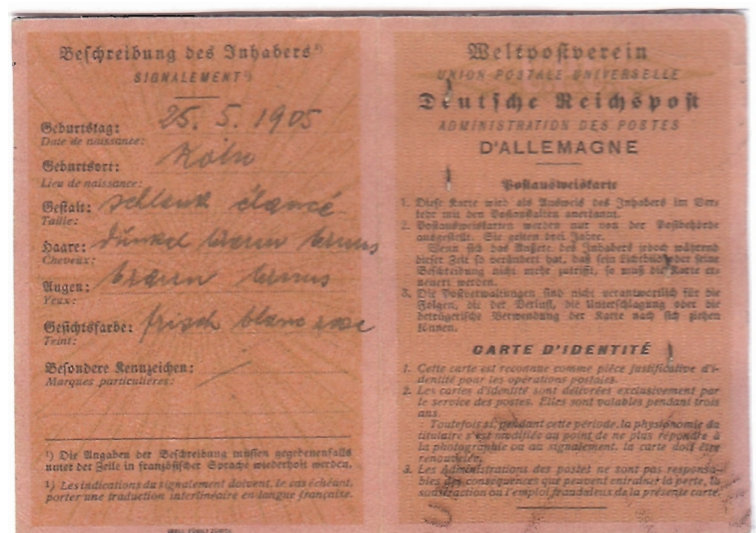 Beschreibung des Inhabers¹)
SIGNALEMENT¹)
Geburtstag: 25. 5. 1905
Date de naissance:
Geburtsort: Köln
Lieu de naissance:
Gestalt: schlank élancé
Taille:
Haare: dunkel braun bruns
Cheveux:
Augen: braun bruns
Yeux:
Gesichtsfarbe: frisch blanc rose
Teint:
Besondere Kennzeichen: /
Marques particulières:
¹) Die Angaben der Beschreibung müssen gegebenenfalls
unter der Zeile in französischer Sprache wiederholt werden.
¹) Les indications du signalement doivent, le cas échéant,
porter une traduction interlinéaire en langue française.
Weltpostverein
UNION POSTALE UNIVERSELLE
Deutsche Reichspost
ADMINISTRATION DES POSTES
D'ALLEMAGNE
Postausweiskarte
1. Diese Karte wird als Ausweis des Inhabers im Ver-
kehr mit den Postanstalten anerkannt.
2. Postausweiskarten werden nur von der Postbehörde
ausgestellt. Sie gelten drei Jahre.
Wenn sich das Äußere des Inhabers jedoch während
dieser Zeit so verändert hat, daß sein Lichtbild oder seine
Beschreibung nicht mehr zutrifft, so muß die Karte er-
neuert werden.
3. Die Postverwaltungen sind nicht verantwortlich für die
Folgen, die der Verlust, die Unterschlagung oder die
betrügerische Verwendung der Karte nach sich ziehen
können.
CARTE D'IDENTITÉ
1. Cette carte est reconnue comme pièce justificative d'i-
dentité pour les opérations postales.
2. Les cartes d'identité sont délivrées exclusivement par
le service des postes. Elles sont valables pendant trois
ans.
Toutefois si, pendant cette période, la physionomie du
titulaire s'est modifiée au point de ne plus répondre à
la photographie ou au signalement, la carte doit être
renouvelée.
3. Les Administrations des postes ne sont pas responsa-
bles des conséquences que peuvent entraîner la perte, la
soustraction ou l'emploi frauduleux de la présente carte.